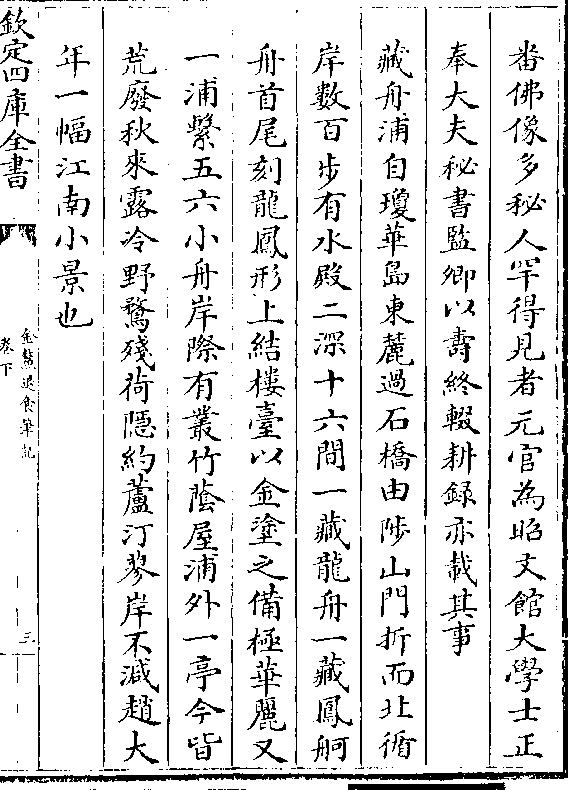 番佛像多秘人罕得見者元官為昭文館大學士正
奉大夫秘書監卿以壽終輟耕録亦載其事
藏舟浦自瓊華島東麓過石橋由陟山門折而北循
岸數百步有水殿二深十六間一藏龍舟一藏鳳舸
舟首尾刻龍鳳形上結樓臺以金塗之備極華麗又
一浦繫五六小舟岸際有叢竹蔭屋浦外一亭今皆
荒廢秋來露冷野鶩殘荷隱約蘆汀蓼岸不減趙大
年一幅江南小景也
欽定四庫全書
金鰲退食筆記
卷下
三